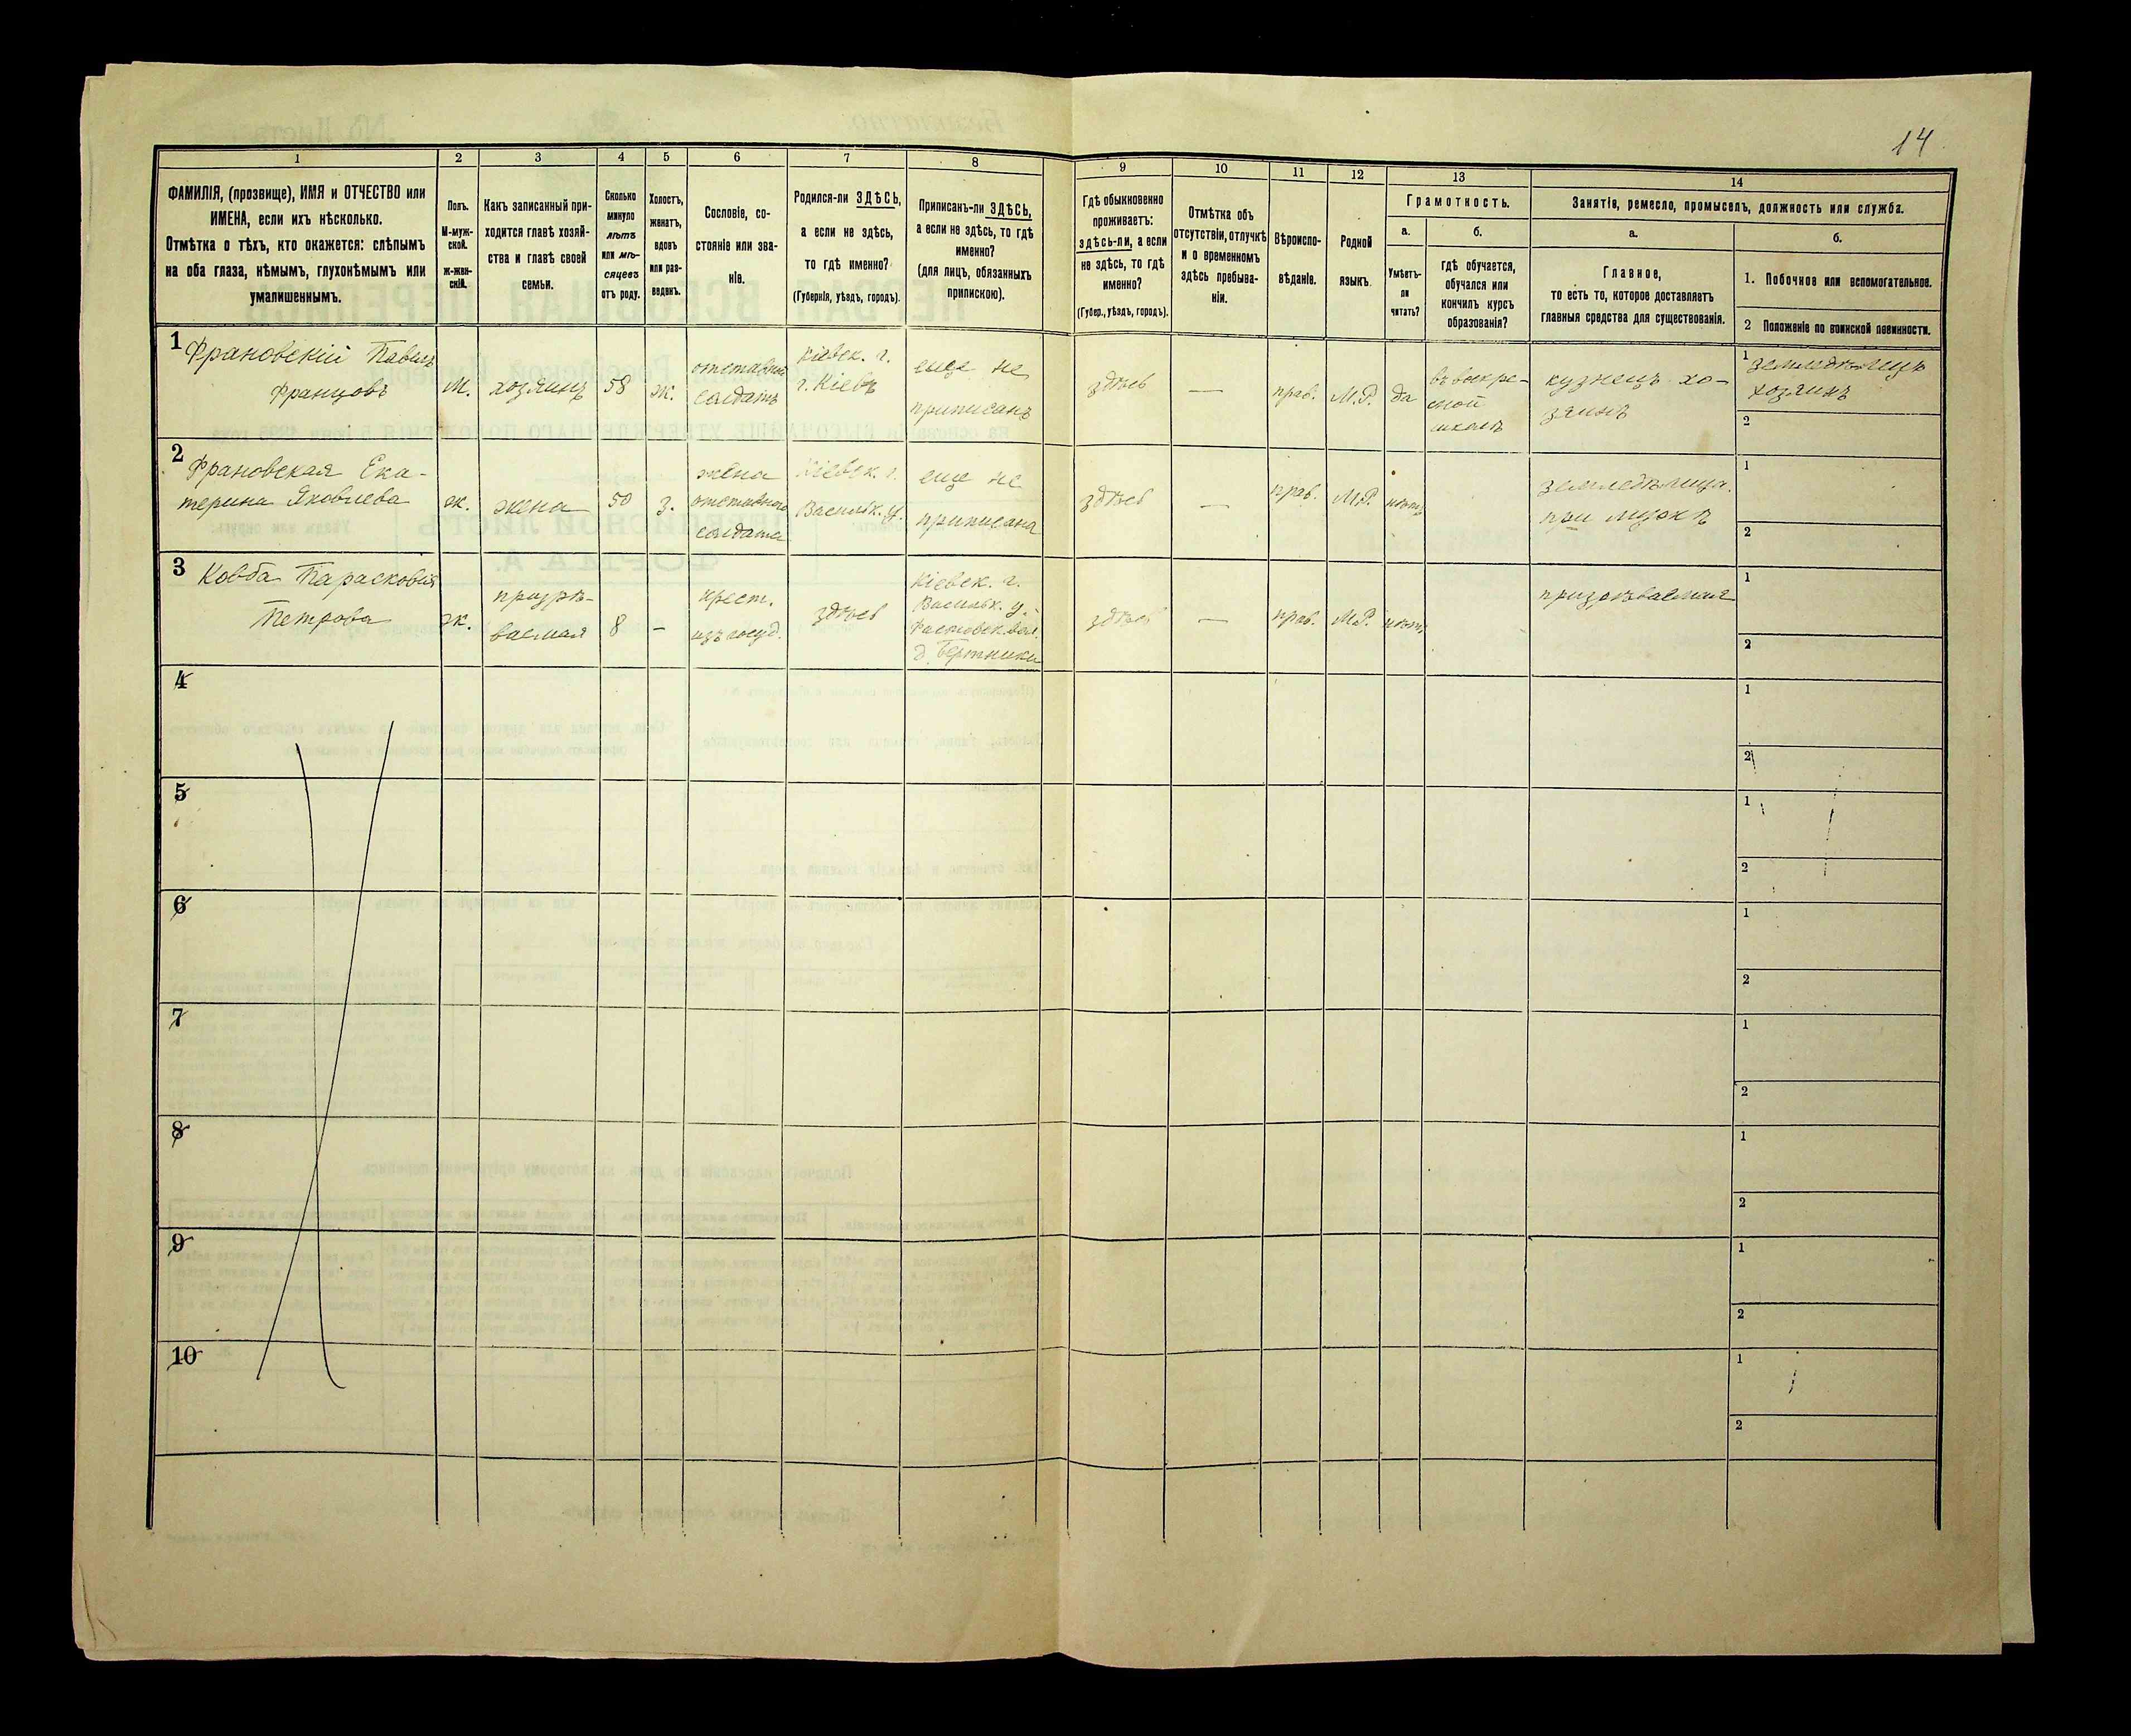 14
1
2
3
4
5
6
7
8
9
10
11
12
13
14
ФАМИЛІЯ, (прозвище), ИМЯ и ОТЧЕСТВО или
ИМЕНА, если ихъ нѣсколько.
Отмѣтка о тѣхъ, кто окажется: слѣпымъ
на оба глаза, нѣмымъ, глухонѣмымъ или
умалишеннымъ.
Полъ.
М-муж-
ской.
ж-жен-
скій.
Какъ записанный при-
ходится главѣ хозяй-
ства и главѣ своей
семьи.
Сколько
минуло
лѣтъ
или мѣ-
сяцевъ
отъ роду.
Холостъ,
женатъ,
вдовъ
или раз-
веденъ.
Сословіе, со-
стояніе или зва-
ніе.
Родился-ли ЗДѢСЬ,
а если не здѣсь,
то гдѣ именно?
(Губернія, уѣздъ, городъ).
Приписанъ-ли ЗДѢСЬ,
а если не здѣсь, то гдѣ
именно?
(для лицъ, обязанныхъ
припискою).
Гдѣ обыкновенно
проживаетъ:
здѣсь-ли, а если
не здѣсь, то гдѣ
именно?
(Губер., уѣздъ, городъ).
Отмѣтка объ
отсутствіи, отлучкѣ
и о временномъ
здѣсь пребыва-
ніи.
Вѣроиспо-
вѣданіе.
Родной
языкъ.
Грамотность.
а.
Умѣетъ-
ли
читать?
б.
гдѣ обучается,
обучался или
кончилъ курсъ
образованія?
Занятіе, ремесло, промыселъ, должность или служба.
а.
Главное,
то есть то, которое доставляетъ
главныя средства для существованія.
б.
1. Побочное или вспомогательное.
2 Положеніе по воинской повинности.
1
Франовскій Павелъ
Францовъ
М.
хозяинъ
58
ж.
отставной
солдатъ
Кіевск. г.
г. Кіевъ
еще не
приписанъ
здѣсь
—
прав.
М.Р.
да
въ воскре-
сной
школѣ
кузнецъ хо-
зяинъ
1 земледѣлецъ
хозяинъ
2
2
Франовская Ека-
терина Яковлева
ж.
жена
50
з.
жена
отставного
солдата
Кіевск. г.
Васильк. у.
еще не
приписана
здѣсь
—
прав.
М.Р.
нѣтъ
земледѣлица
при мужѣ
1
2
3
Ковба Парасковія
Петрова
ж.
призрѣ-
ваемая
8
—
крест.
изъ госуд.
здѣсь
Кіевск. г.
Васильк. у.
Фастовск. вол.
д. Бертники
здѣсь
—
прав.
М.Р.
нѣтъ
призрѣваемая
1
2
4
1
2
5
1
2
6
1
2
7
1
2
8
1
2
9
1
2
10
1
2